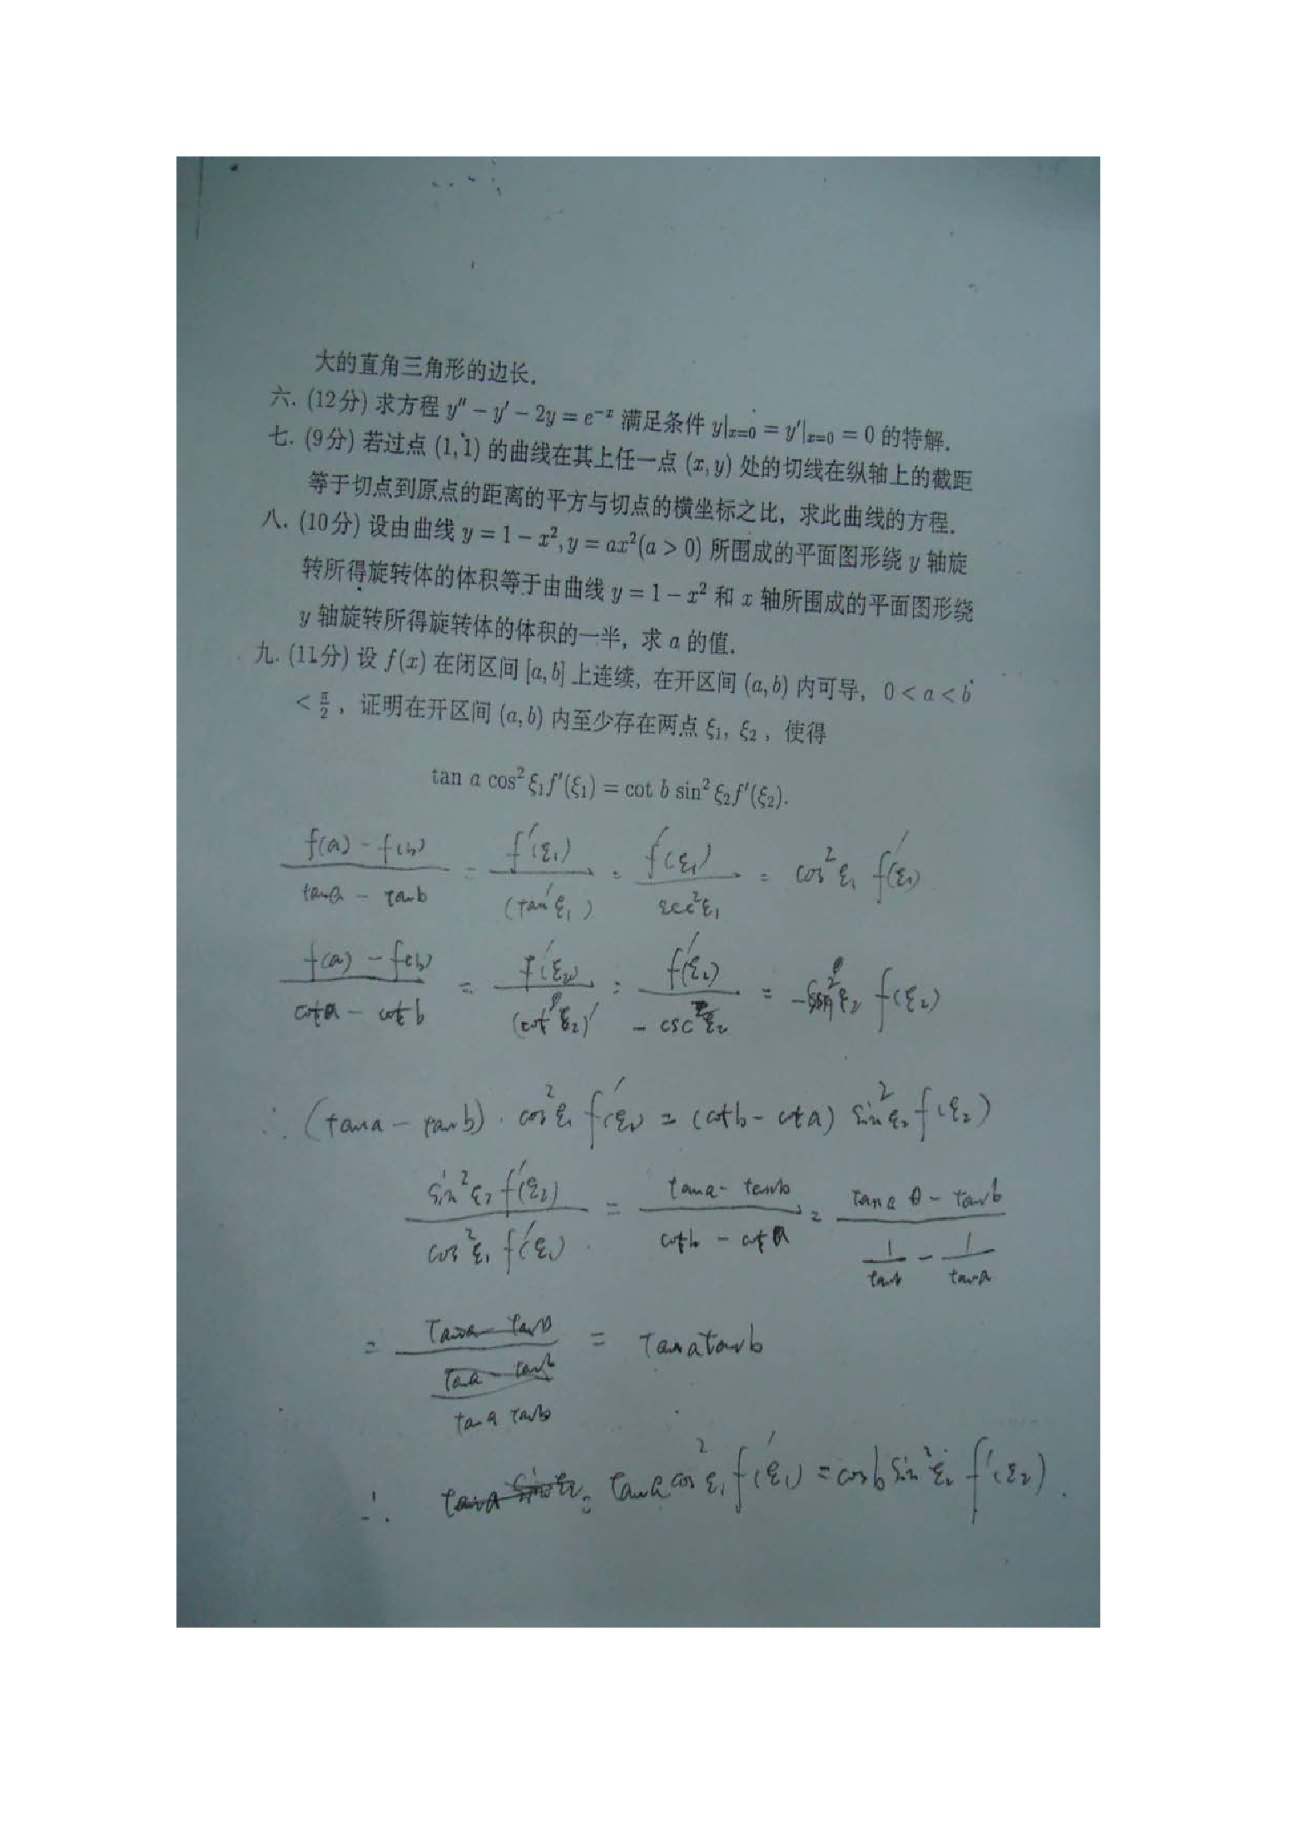 大的直角三角形的边长.
六. (12分) 求方程 y″ − y′ − 2y = e^{-x} 满足条件 y|_{x=0} = y′|_{x=0} = 0 的特解.
七. (9分) 若过点 (1,1) 的曲线在其上任一点 (x, y) 处的切线在纵轴上的截距
等于切点到原点的距离的平方与切点的横坐标之比, 求此曲线的方程.
八. (10分) 设由曲线 y = 1 − x², y = ax²(a > 0) 所围成的平面图形绕 y 轴旋
转所得旋转体的体积等于由曲线 y = 1 − x² 和 x 轴所围成的平面图形绕
y 轴旋转所得旋转体的体积的一半, 求 a 的值.
九. (11分) 设 f(x) 在闭区间 [a, b] 上连续, 在开区间 (a, b) 内可导, 0 < a < b
< π/2 , 证明在开区间 (a, b) 内至少存在两点 ξ₁, ξ₂ , 使得
tan a cos² ξ₁f′(ξ₁) = cot b sin² ξ₂f′(ξ₂).
(f(a) − f(b))/(tan a − tan b) = f′(ξ₁)/(tan′ξ₁) = f′(ξ₁)/sec²ξ₁ = cos²ξ₁ f′(ξ₁)
(f(a) − f(b))/(cot a − cot b) = f′(ξ₂)/(cot ξ₂)′ = f′(ξ₂)/(−csc²ξ₂) = −sin²ξ₂ f(ξ₂)
∴ (tan a − tan b) · cos²ξ₁ f′(ξ₁) = (cot b − cot a) sin²ξ₂ f(ξ₂)
sin²ξ₂ f′(ξ₂)/(cos²ξ₁ f′(ξ₁)) = (tan a − tan b)/(cot b − cot a) = (tan a − tan b)/(1/tan b − 1/tan a)
= (tan a − tan b)/((tan a − tan b)/(tan a tan b)) = tan a tan b
∴ tan a cos²ξ₁ f′(ξ₁) = cos b sin²ξ₂ f′(ξ₂).